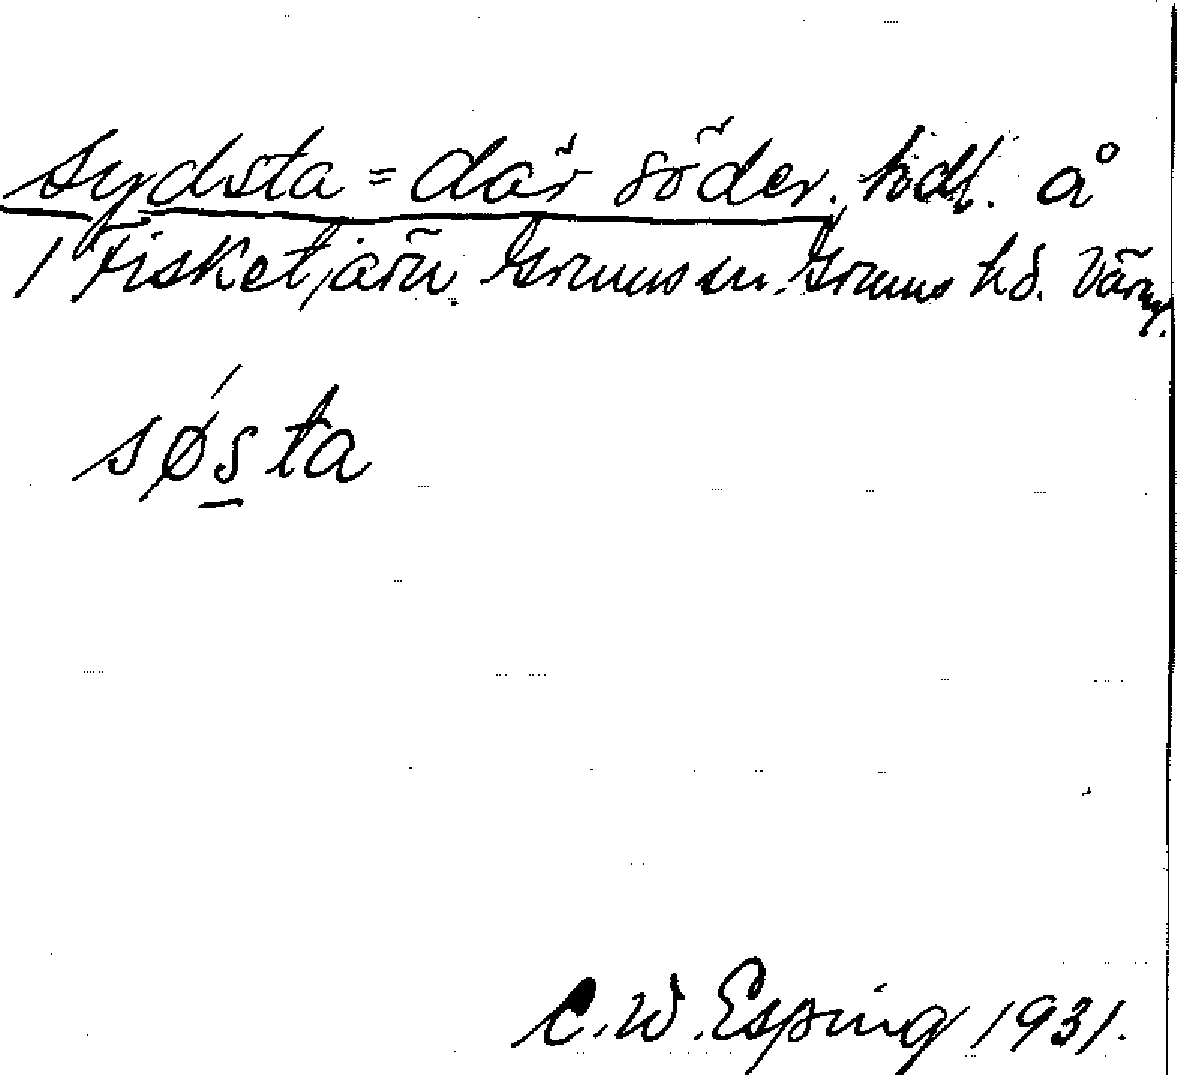 sydsta = där söder. hödl. å
1 Fisketjärn Grums sn. Grums hd. Värml.
søsta
C. W. Esping 1931.